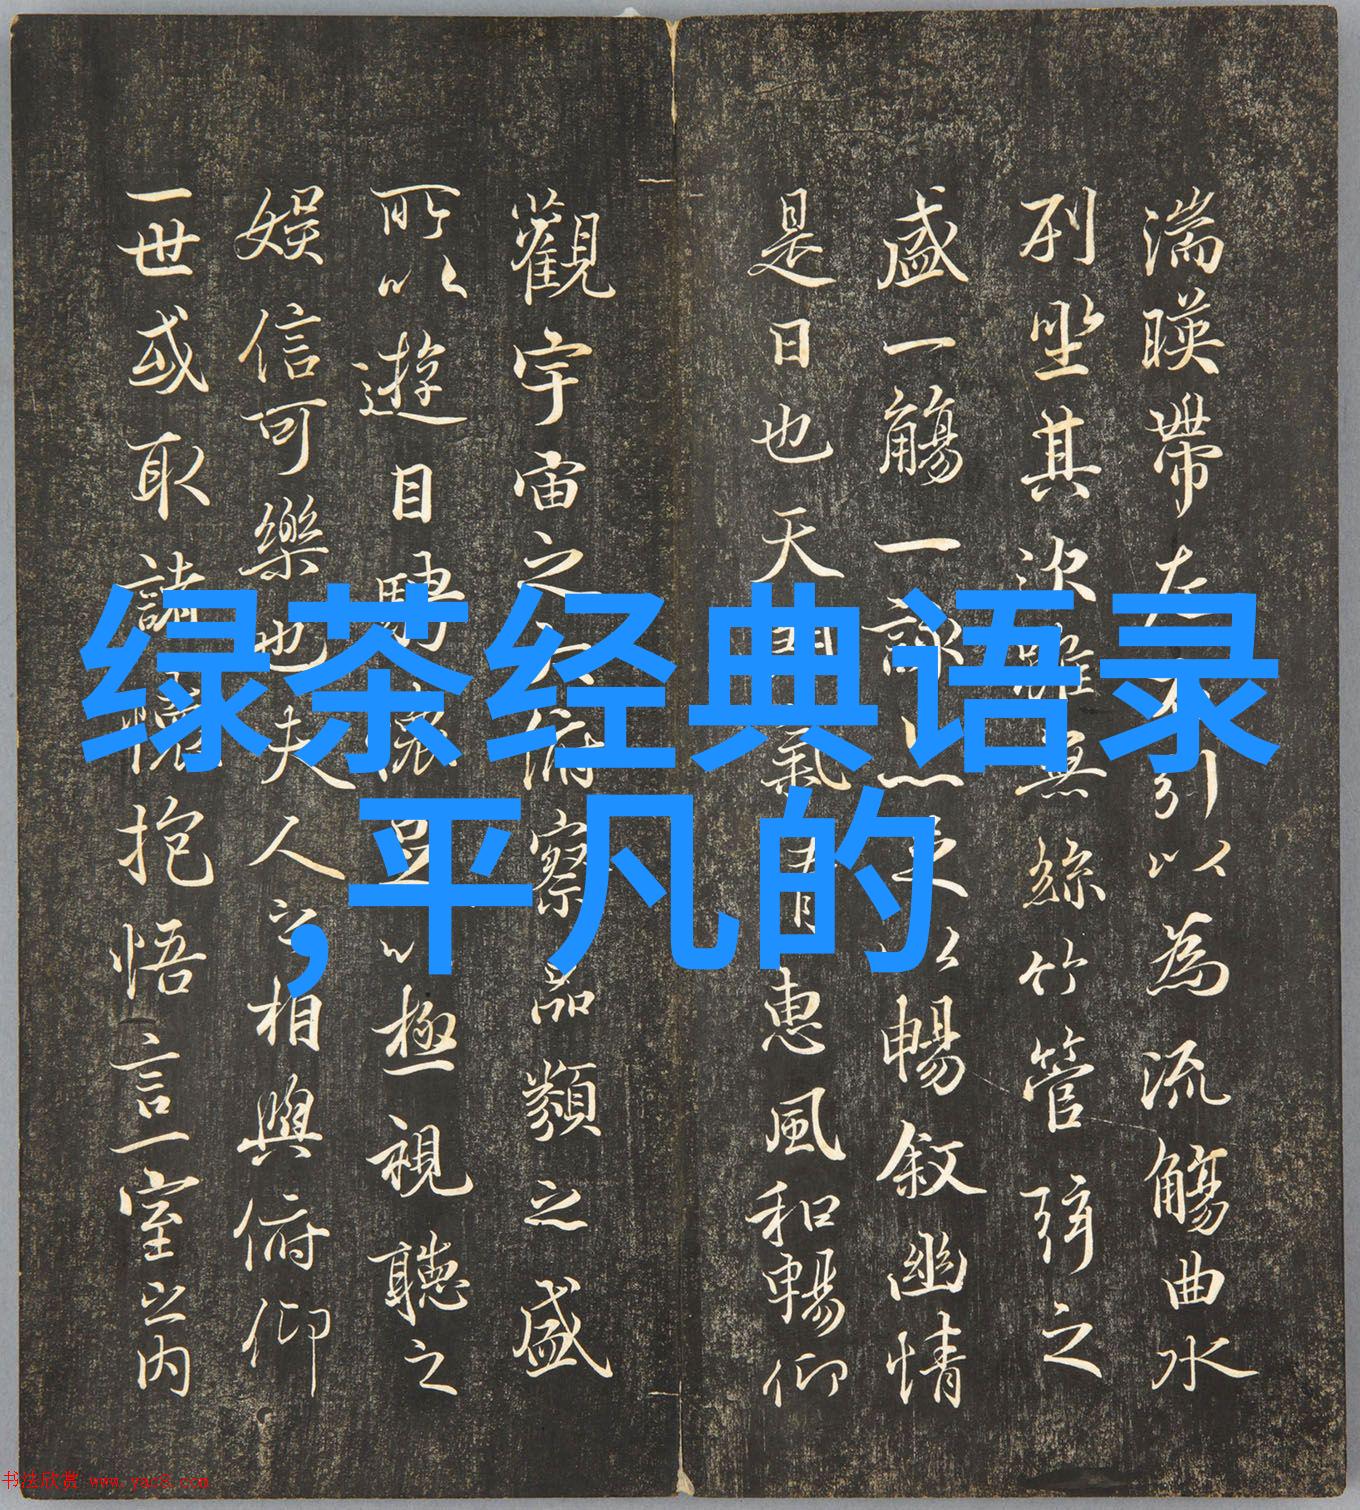 湍暎帶左右引以為流觴曲水
列坐其次雖無絲竹管弦之
盛一觴一詠亦足以暢敘幽情
是日也天朗氣清惠風和暢仰
觀宇宙之大俯察品類之盛
所以遊目騁懷足以極視聽之
娛信可樂也夫人之相與俯仰
一世或取諸懷抱悟言一室之内
绿茶经典语录
,平凡的
书法欣赏 www.yac8.com